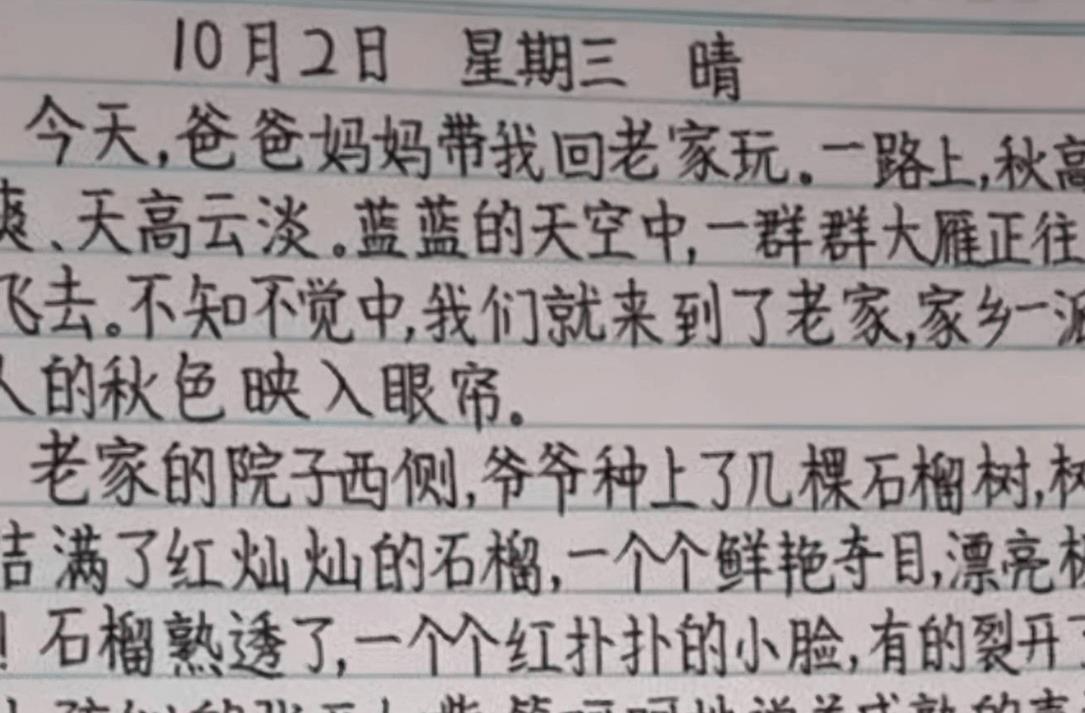 10月2日 星期三 晴
今天,爸爸妈妈带我回老家玩。一路上,秋高
爽、天高云淡。蓝蓝的天空中,一群群大雁正往
飞去。不知不觉中,我们就来到了老家,家乡一派
人的秋色映入眼帘。
老家的院子西侧,爷爷种上了几棵石榴树,树
结满了红灿灿的石榴,一个个鲜艳夺目,漂亮极
!石榴熟透了,一个个红扑扑的小脸,有的裂开了